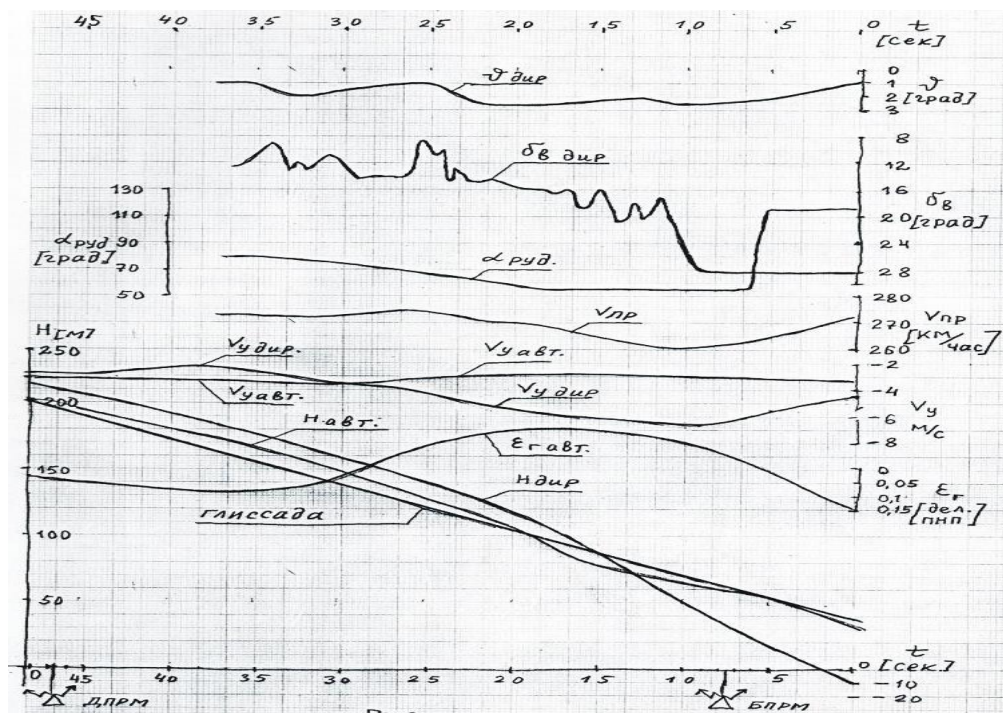 45 40 35 30 25 20 15 10 5 0 t
[сек]
0
1
2
3
ϑ
[град]
ϑ дир
8
12
16
20
24
28
δв
[град]
δв дир
130
110
90
70
50
αруд
[град]
αруд.
280
270
260
Vпр
[км/час]
Vпр
H[м]
250
200
150
100
50
0
Vу дир.
Vу авт.
Vу авт.
Vу дир
-2
-4
-6
-8
Vу
м/с
H авт.
εг авт.
H дир
глиссада
0
0,05
0,1
0,15
εг
[дел. пнп]
45 40 35 30 25 20 15 10 5 0
t
[сек.]
-10
-20
ДПРМ
БПРМ